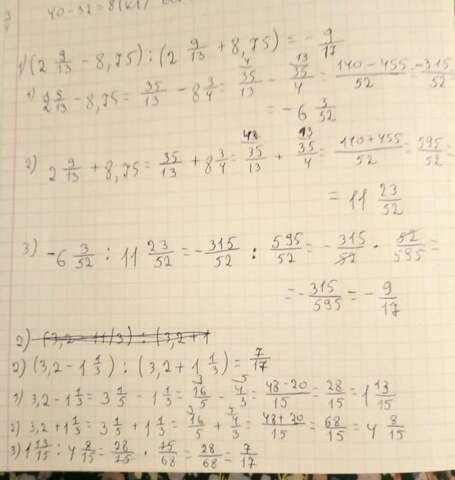 40 - 32 = 8 (кг)
1) (2 9/13 - 8,75) : (2 9/13 + 8,75) = - 9/17
1) 2 9/13 - 8,75 = 35/13 - 8 3/4 = 35/13 - 35/4 = (140 - 455)/52 = -315/52
= -6 3/52
2) 2 9/13 + 8,75 = 35/13 + 8 3/4 = 35/13 + 35/4 = (140 + 455)/52 = 595/52 =
= 11 23/52
3) -6 3/52 : 11 23/52 = - 315/52 : 595/52 = - 315/52 · 52/595 =
= - 315/595 = - 9/17
2) (3,2 - 11/3) : (3,2 + 1
2) (3,2 - 1 1/3) : (3,2 + 1 1/3) = 7/17
1) 3,2 - 1 1/3 = 3 1/5 - 1 1/3 = 16/5 - 4/3 = (48 - 20)/15 = 28/15 = 1 13/15
2) 3,2 + 1 1/3 = 3 1/5 + 1 1/3 = 16/5 + 4/3 = (48 + 20)/15 = 68/15 = 4 8/15
3) 1 13/15 : 4 8/15 = 28/15 · 15/68 = 28/68 = 7/17